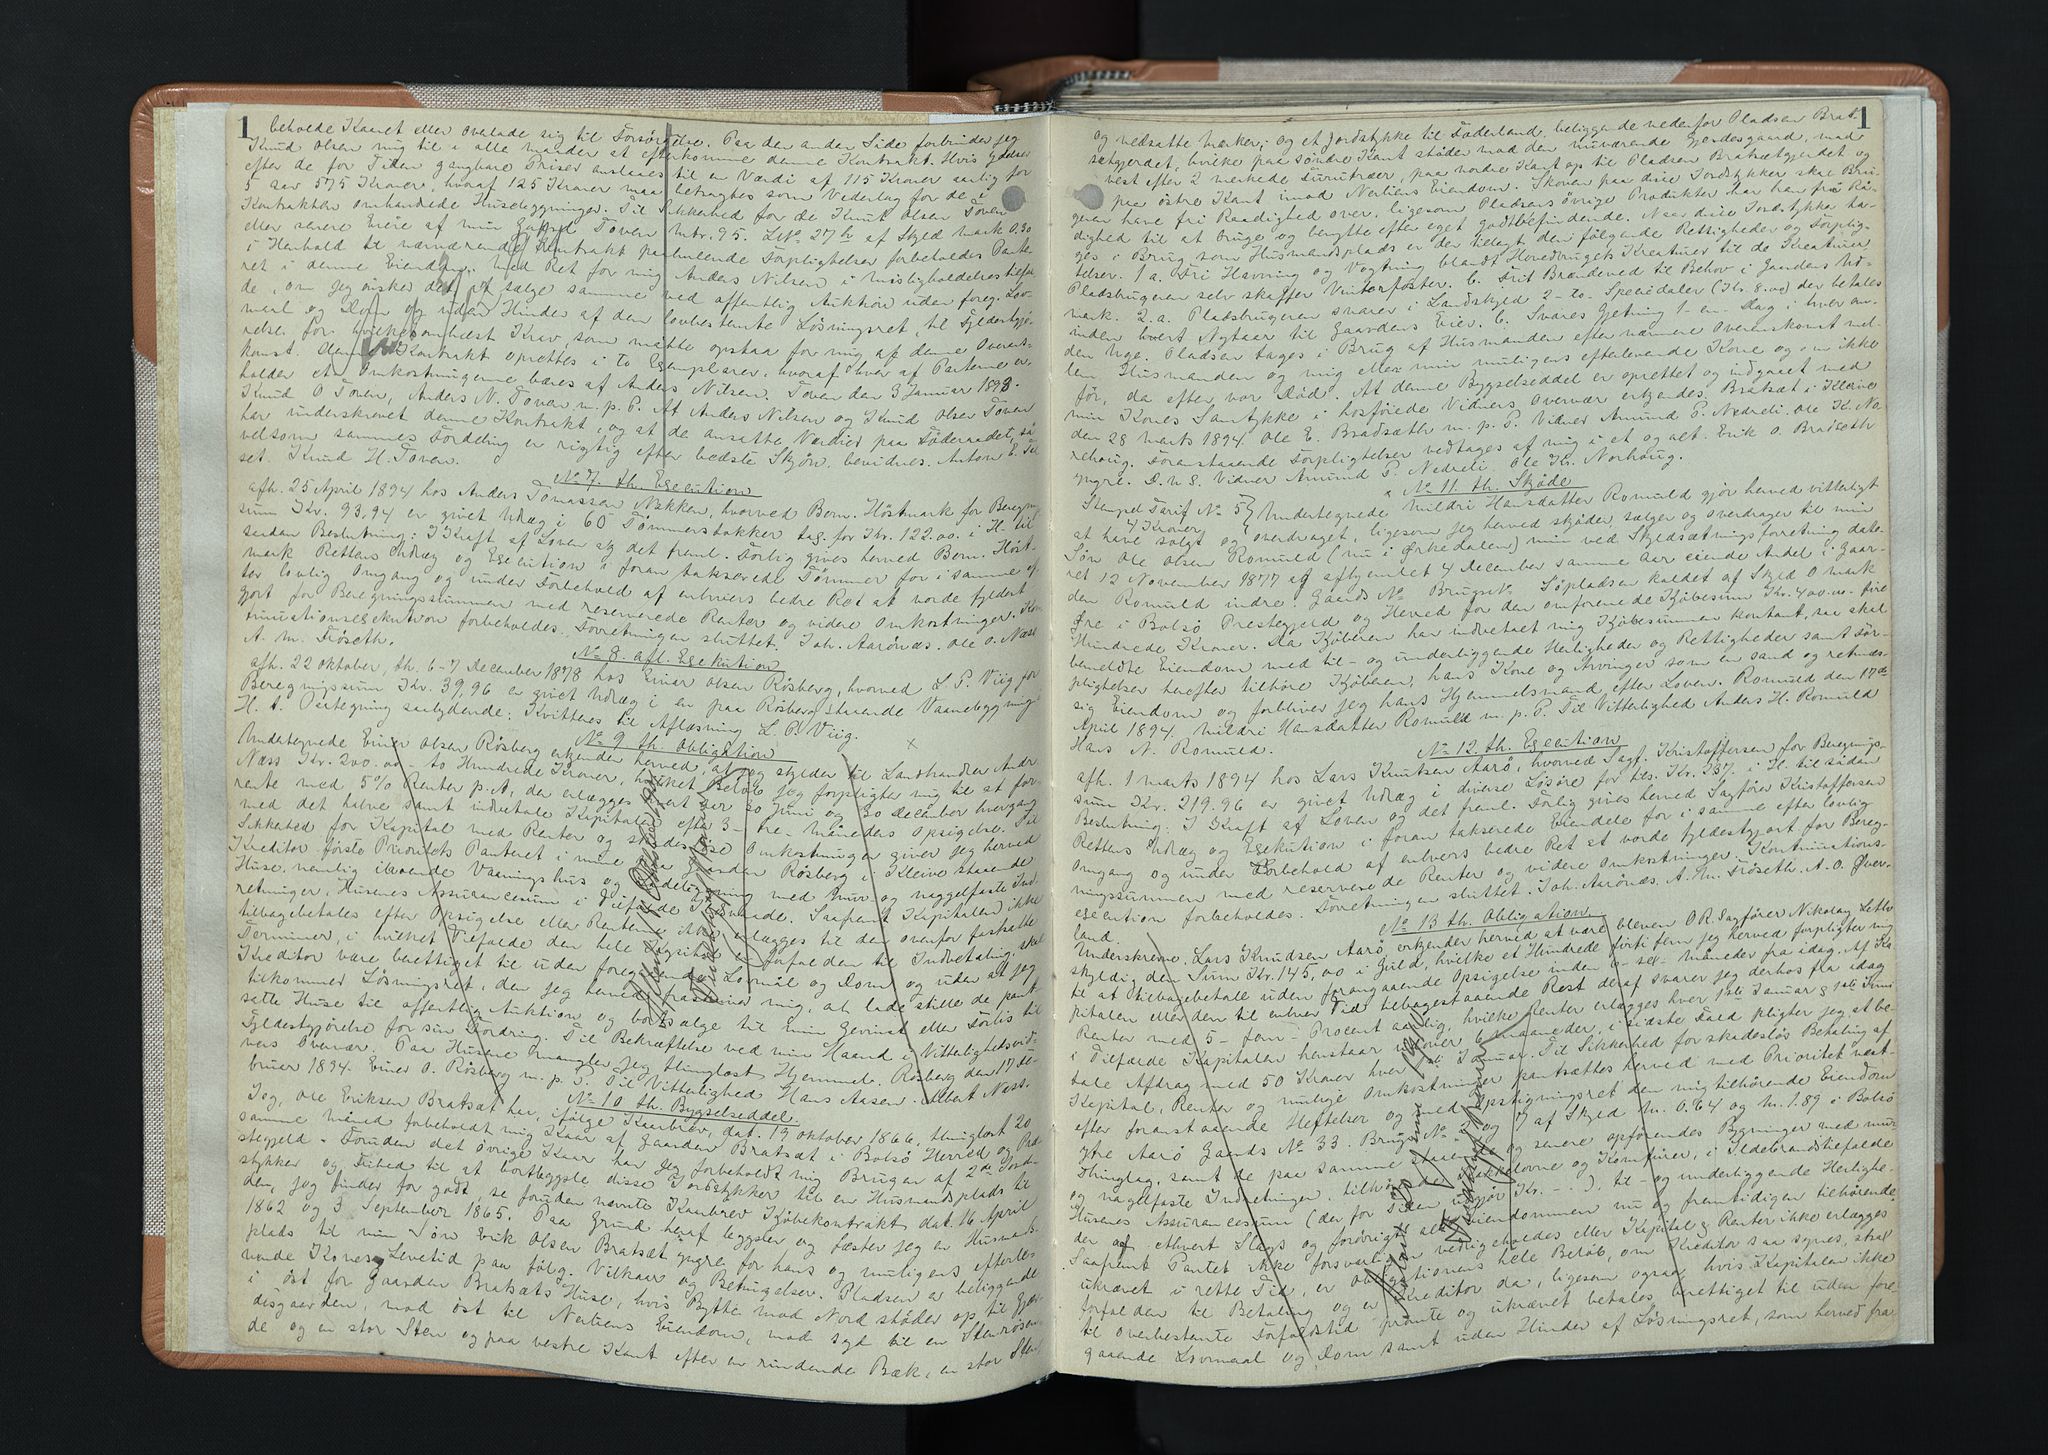 1
beholde Kaaret eller overlade sig til Forsørgelse. Paa den anden Side forbinder jeg
Knud Olsen mig til i alle maader at efterkomme denne Kontrakt. Hvis Ydelser
efter de for Tiden gangbare Priser anslaaes til en Værdi af 115 Kroner aarlig for
5 Aar 575 Kroner, hvoraf 125 Kroner maa betragtes som Vederlag for de i
Kontrakten omhandlede Husebygninger. Til Sikkerhed for de Knut Olsen Toven
eller senere Eiere af min Gaard Toven Mtr. 95. LNo 27b af Skyld Mark 0.30
i Henhold til nærværende Kontrakt paahvilende Forpligtelser forbeholdes Pante-
ret i denne Eiendom. Med Ret for mig Anders Nilsen i Misligholdelsestilfæl-
de, om jeg ønsker det at sælge samme ved offentlig Auktion uden foreg. Lov-
maal og Dom og uden Hinder af den lovbestemte Løsningsret til Fyldestgjø-
relse for hvilketsomhelst Krav, som maatte opstaa for mig af denne Overens-
komst. Denne Kontrakt oprettes i to Exemplarer, hvoraf hver af Parterne er-
holder et. Omkostningerne bæres af Anders Nilsen. Toven den 3 Januar 1893.
Knud O Toven, Anders N. Toven m. p. P. At Anders Nilsen og Knud Olsen Toven
har underskrevet denne Kontrakt, og at de ansatte Værdier paa Føderaadet, så
velsom sammes Fordeling er rigtig efter bedste Skjøn, bevidnes. Anton E. Til
set. Knud H. Toven.
No 7. th. Exekution
afh. 25 April 1894 hos Anders Tomassen Nøkken, hvorved Bern. Höstmark for Beregnings
sum Kr. 93,94 er givet Udlæg i 60 Tømmerstokker tag. for Kr. 122.00. i H. til
saadan Beslutning: I Kraft af Loven og det freml. Forlig gives herved Bern. Höst-
mark Rettens Udlæg og Exekution i foran takserede Tømmer for i samme ef-
ter lovlig Omgang og under Forbehold af enhvers bedre Ret at vorde fyldest
gjort for Beregningssummen med reserverede Renter og videre Omkostninger. Kon
tinuationsexekution forbeholdes. Forretningen sluttet. Joh. Aarönæs. Ole O. Næss
A. M. Fröseth.
No 8. afl. Exekution
afh. 22 Oktober, th. 6-7 December 1878 hos Einer Olsen Rösberg, hvorved L. P. Viig for
Beregningssum Kr. 39,96 er givet Udlæg i en paa Rösberg staaende Vaanebygning
H. t. Paategning saalydende: Kvitteres til Aflæsning L. P. Viig.
No 9 th. Obligation
Undertegnede Einer Olsen Rösberg erkjender herved, at jeg skylder til Landhandler Andr.
Næss Kr. 200.00 - to Hundrede Kroner, hvilket Beløb jeg forpligter mig til at for-
rente med 5% Renter p. A., der erlægges hvert Aar 30 Juni og 30 December hvergang
med det halve samt indbetale Kapitalen efter 3 - tre - Maaneders Opsigelse. Til
Sikkerhed for Kapital med Renter og skadesløse Omkostninger giver jeg herved
Kreditor første Prioritets Panteret i mine paa Gaarden Rösberg i Kleive staaende
Huse, nemlig iboende Vaaningshus og Udebygning med Mur og naggelfaste Ind-
retninger, Husenes Assurancesum i Tilfælde Ildsvaade. Saafremt Kapitalen ikke
tilbagebetales efter Opsigelse eller Renterne ikke erlægges til den ovenfor fastsatte
Terminer, i hvilket Tilfælde den hele Kapital er forfalden til Indbetaling, skal
Kreditor være berettiget til uden foregaaende Lovmål og Dom og uden at jeg
tilkommer Løsningsret, den jeg herved frasiger mig, at lade stille de pant-
satte Huse til offentlig Auktion og bortsælge til min Gevinst eller Forlis til
Fyldestgjørelse for sin Fordring. Til Bekræftelse ved min Haand i Vitterlighedsvid-
ners Overvær. Paa Husene mangler jeg thinglæst Hjemmel. Rösberg den 17 Fe-
bruar 1894. Einer O. Rösberg m. p. P. Til Vitterlighed Hans Aasen. Albert Næss.
No 10 th. Bygselseddel
Jeg, Ole Eriksen Bratsæt har, ifølge Kaarbrev, dat. 19 Oktober 1866, thinglæst 20
samme Måned forbeholdt mig Kaar af Gaarden Bratsæt i Bolsö Herred og Præ
stegjeld - Foruden det øvrige Kaar har jeg forbeholdt mig Brugen af 2de Jord-
stykker og Frihed til at bortbygsle disse Jordstykker til en Husmandsplads til
den, jeg finder for godt, se foruden nævnte Kaarbrev Kjøbekontrakt dat. 16 April
1862 og 3 September 1865. Paa Grund heraf bygsler og fæster jeg en Husmands-
plads til min Søn Erik Olsen Bratsæt yngre for hans og muligens efterle-
vende Kones Levetid paa følg. Vilkaar og Betingelser. Pladsen er beliggende
i Øst for Gaarden Bratsæts Huse, hvis Bytte mod Nord støder op til Gjær-
desgaarden, mod Øst til Nerliens Eiendom, mod Syd til en Stenrøse
de og en stor Sten og paa vestre Kant efter en rindende Bæk, en stor Sten
1
og nedsatte Mærker; og et Jordstykke til Foderland, beliggende nedenfor Pladsen Brat-
sætgjerdet, hvilke paa søndre Kant støder mod den nuværende Gjerdesgaard, mod
vest efter 2 merkede Furutræer, paa nordre Kant op til Pladsen Bratsætgjerdet og
paa østre Kant imod Nerliens Eiendom. Skoven paa disse Jordstykker skal Bru-
geren have fri Raadighed over, ligesom Pladsens øvrige Produkter har han fri Rå-
dighed til at bruge og benytte efter eget Godtbefindende. Naar disse Jordstykker ta-
ges i Brug som Husmandsplads er der tillagt den følgende Rettigheder og Forplig-
telser. 1 a. Fri Havning og Vogtning blandt Hovedbrugets Kreaturer til de Kreaturer
Pladsbrugeren selv skaffer Vinterfoster. b. Frit Brændeved til Behov i Gaardens Ud-
mark. 2.a. Pladsbrugeren svarer i Landskyld 2 - to - Speciedaler (Kr. 8.00) der betales
inden hvert Nytaar til Gaardens Eier. b. Svares Gjetning 1 - en - Dag i hver an-
den Uge. Pladsen tages i Brug af Husmanden efter nærmere Overenskomst mel-
lem Husmanden og mig eller min muligens efterlevende Kone og om ikke
før, da efter vor Død. At denne Bygselseddel er oprettet og indgaaet med
min Kones Samtykke i hosføiede Vidners Overvær erkjendes. Bratsæt i Kleive
den 28 Marts 1894. Ole E. Bradsæth m. p. P. Vidner Amund P. Nedreli. Ole K. No
rehoug. Foranstaaende Forpligtelser vedtages af mig i et og alt. Erik O. Bradseth
yngre. D. u. S. Vidner Amund P. Nedreli. Ole Kr. Norhoug.
No 11 th. Skjøde
Stempel Tarif No 5
4 Kroner,
Undertegnede Mildri Hansdatter Romuld gjør herved vitterligt
at have solgt og overdraget, ligesom jeg herved skjøder, sælger og overdrager til min
Søn Ole Olsen Romuld (nu i Ørkedalen) min ved Skyldsætningsforretning date-
ret 12 November 1877 og afhjemlet 4 December samme Aar eiende Andel i Gaar-
den Romuld indre. Gaards No Brugs No Söpladsen kaldet af Skyld 0 Mark
Øre i Bolsö Prestegjeld og Herred for den omforenede Kjøbesum Kr. 400.00 - fire
Hundrede Kroner. Da Kjøberen har indbetalt mig Kjøbesummen kontant, saa skal
bemeldte Eiendom med til- og underliggende Herligheder og Rettigheder samt For-
pligtelser herefter tilhøre Kjøberen, hans Kone og Arvinger som en sand og retmæs-
sig Eiendom og forbliver jeg hans Hjemmelsmand efter Loven. Romuld den 17de
April 1894. Mildri Hansdatter Romuld m. p. P. Til Vitterlighed Anders H. Romuld
Hans N. Romuld.
No 12. th. Exekution
afh. 1 Marts 1894 hos Lars Knutsen Aarö, hvorved Sagf. Kristoffersen for Beregnings-
sum Kr. 219.96 er givet Udlæg i diverse Løsøre for tils. Kr. 237. i H. til saadan
Beslutning: I Kraft af Loven og det freml. Forlig gives herved Sagfører Kristoffersen
Rettens Udlæg og Exekution i foran takserede Eiendele for i samme efter lovlig
Omgang og under Forbehold af enhvers bedre Ret at vorde fyldestgjort for Bereg-
ningssummen med reserverede Renter og videre Omkostninger. Kontinuations-
exekution forbeholdes. Forretningen sluttet. Joh. Aarönæs. A. M. Fröseth. A. O. Øver-
land.
No 13 th. Obligation
Underskrevne, Lars Knudsen Aarö, erkjender herved at være bleven O.R. Sagfører Nikolay Leth
skyldig den Sum Kr. 145,00 i Guld, hvilke et Hundrede förti fem jeg herved forpligter mig
til at tilbagebetale uden forangaaende Opsigelse inden 6 - sex - Maaneder fra idag. Af Ka
pitalen eller den til enhver Tid tilbagestaaende Rest deraf svarer jeg derhos fra idag
Renter med 5 - fem - Procent aarlig, hvilke Renter erlægges hver 1ste Januar & 1ste Juni
i Tilfælde Kapitalen henstaar udover 6 Maaneder, i sidste Fald pligter jeg at be-
tale Afdrag med 50 Kroner hver 1ste Januar. Til Sikkerhed for skadesløs Betaling af
Kapital, Renter og mulige Omkostninger pantsættes herved med Prioritet næst-
efter foranstaaende Heftelser og med Opstigningsret den mig tilhørende Eiendom
ytre Aarö Gaards No 33. Brugs No 2 og 7 af Skyld M. 0.64 og M. 1.89 i Bolsö
Thinglag, samt de paa samme staaende og senere opførendes Bygninger med mur
og nagelfaste Indretninger, tilhørende Kakkelovne og Komfurer, i Ildebrandstilfælde
Husenes Assurancesum (der for Tiden udgjør Kr. - ), til- og underliggende Herlighe-
der af ethvert Slags og forøvrigt alt Eiendommen nu og fremtidigen tilhørende.
Saafremt Pantet ikke forsvarligt vedligeholdes eller Kapital & Renter ikke erlægges
ukrævet i rette Tid, er Obligationens hele Beløb, om Kreditor saa synes, straks
forfalden til Betaling og er Kreditor da, ligesom ogsaa hvis Kapitalen ikke
til ovenbestemte Forfaldstid prompte og ukrævet betales berettiget til uden fore-
gaaende Lovmaal og Dom samt uden Hinder af Løsningsret, som herved fra